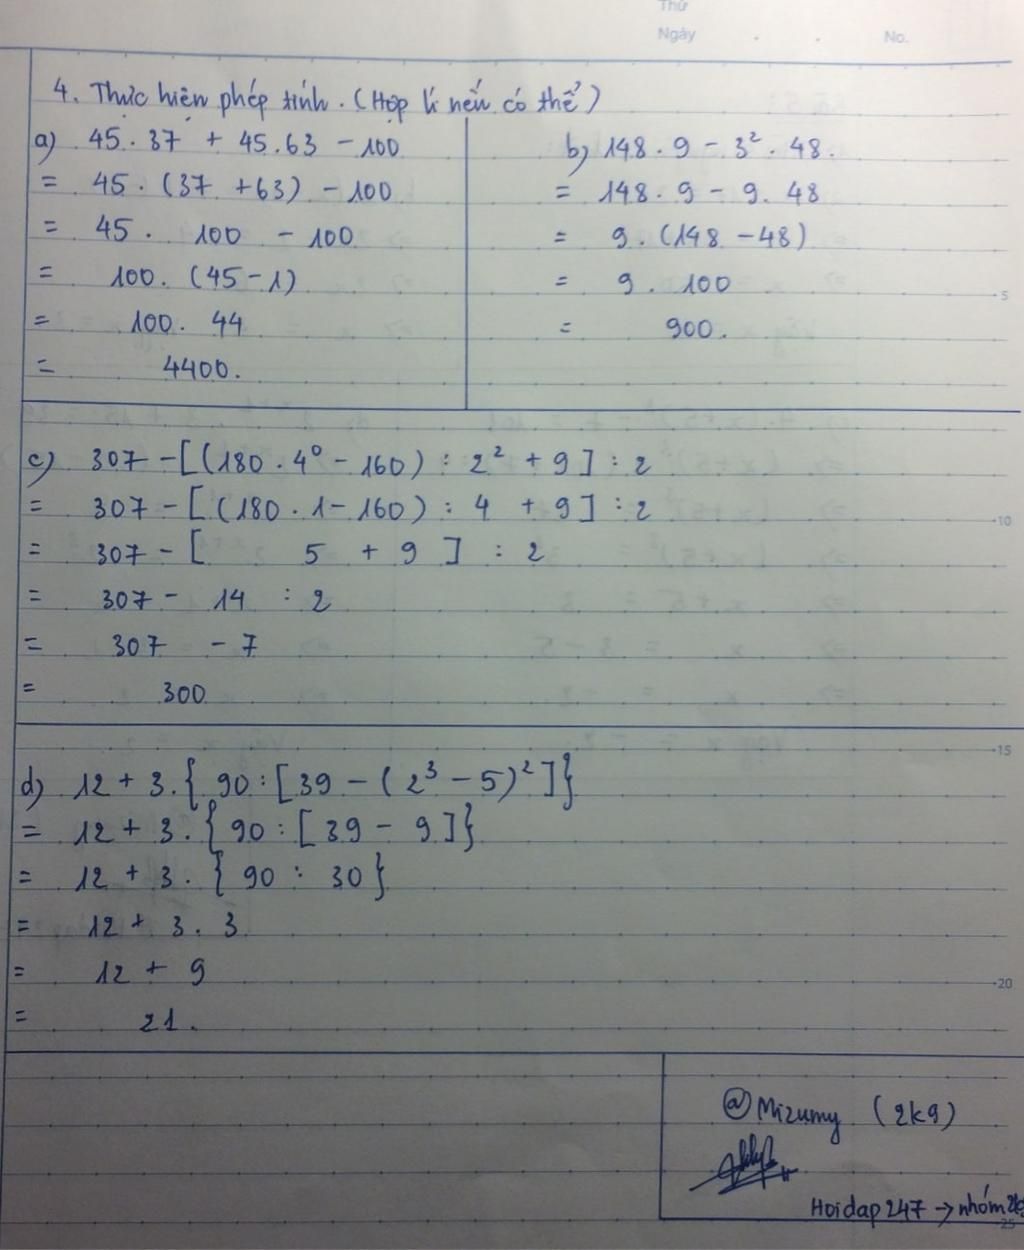 Thứ
Ngày . . No.
4. Thực hiện phép tính. (Hợp lí nếu có thể)
a) 45.37 + 45.63 - 100
= 45. (37 + 63) - 100
= 45. 100 - 100
= 100. (45 - 1)
= 100. 44
= 4400.
b) 148.9 - 3². 48.
= 148.9 - 9.48
= 9.(148 - 48)
= 9.100
= 900.
5
c) 307 - [(180.4⁰ - 160) : 2² + 9] : 2
= 307 - [(180.1 - 160) : 4 + 9] : 2
10
= 307 - [ 5 + 9 ] : 2
= 307 - 14 : 2
= 307 - 7
= 300
15
d) 12 + 3.{ 90 : [39 - (2³ - 5)²]}
= 12 + 3.{90 : [39 - 9]}
= 12 + 3.{90 : 30}
= 12 + 3.3
= 12 + 9
20
= 21.
@Mizumy (2k9)
Hoidap247 → nhóm
25